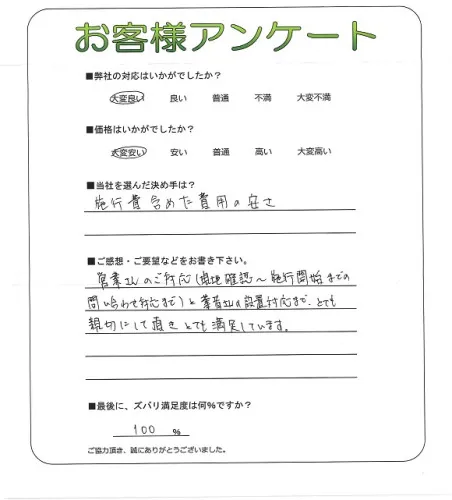 お客様アンケート
■弊社の対応はいかがでしたか？
大変良い 良い 普通 不満 大変不満
■価格はいかがでしたか？
大変安い 安い 普通 高い 大変高い
■当社を選んだ決め手は？
施行費含めた費用の安さ
■ご感想・ご要望などをお書き下さい。
営業さんのご対応(現地確認～施行開始までの
問い合わせ対応まで)と業者さんの設置対応まで、とても
親切にして頂きとても満足しています。
■最後に、ズバリ満足度は何%ですか？
100 %
ご協力頂き、誠にありがとうございました。